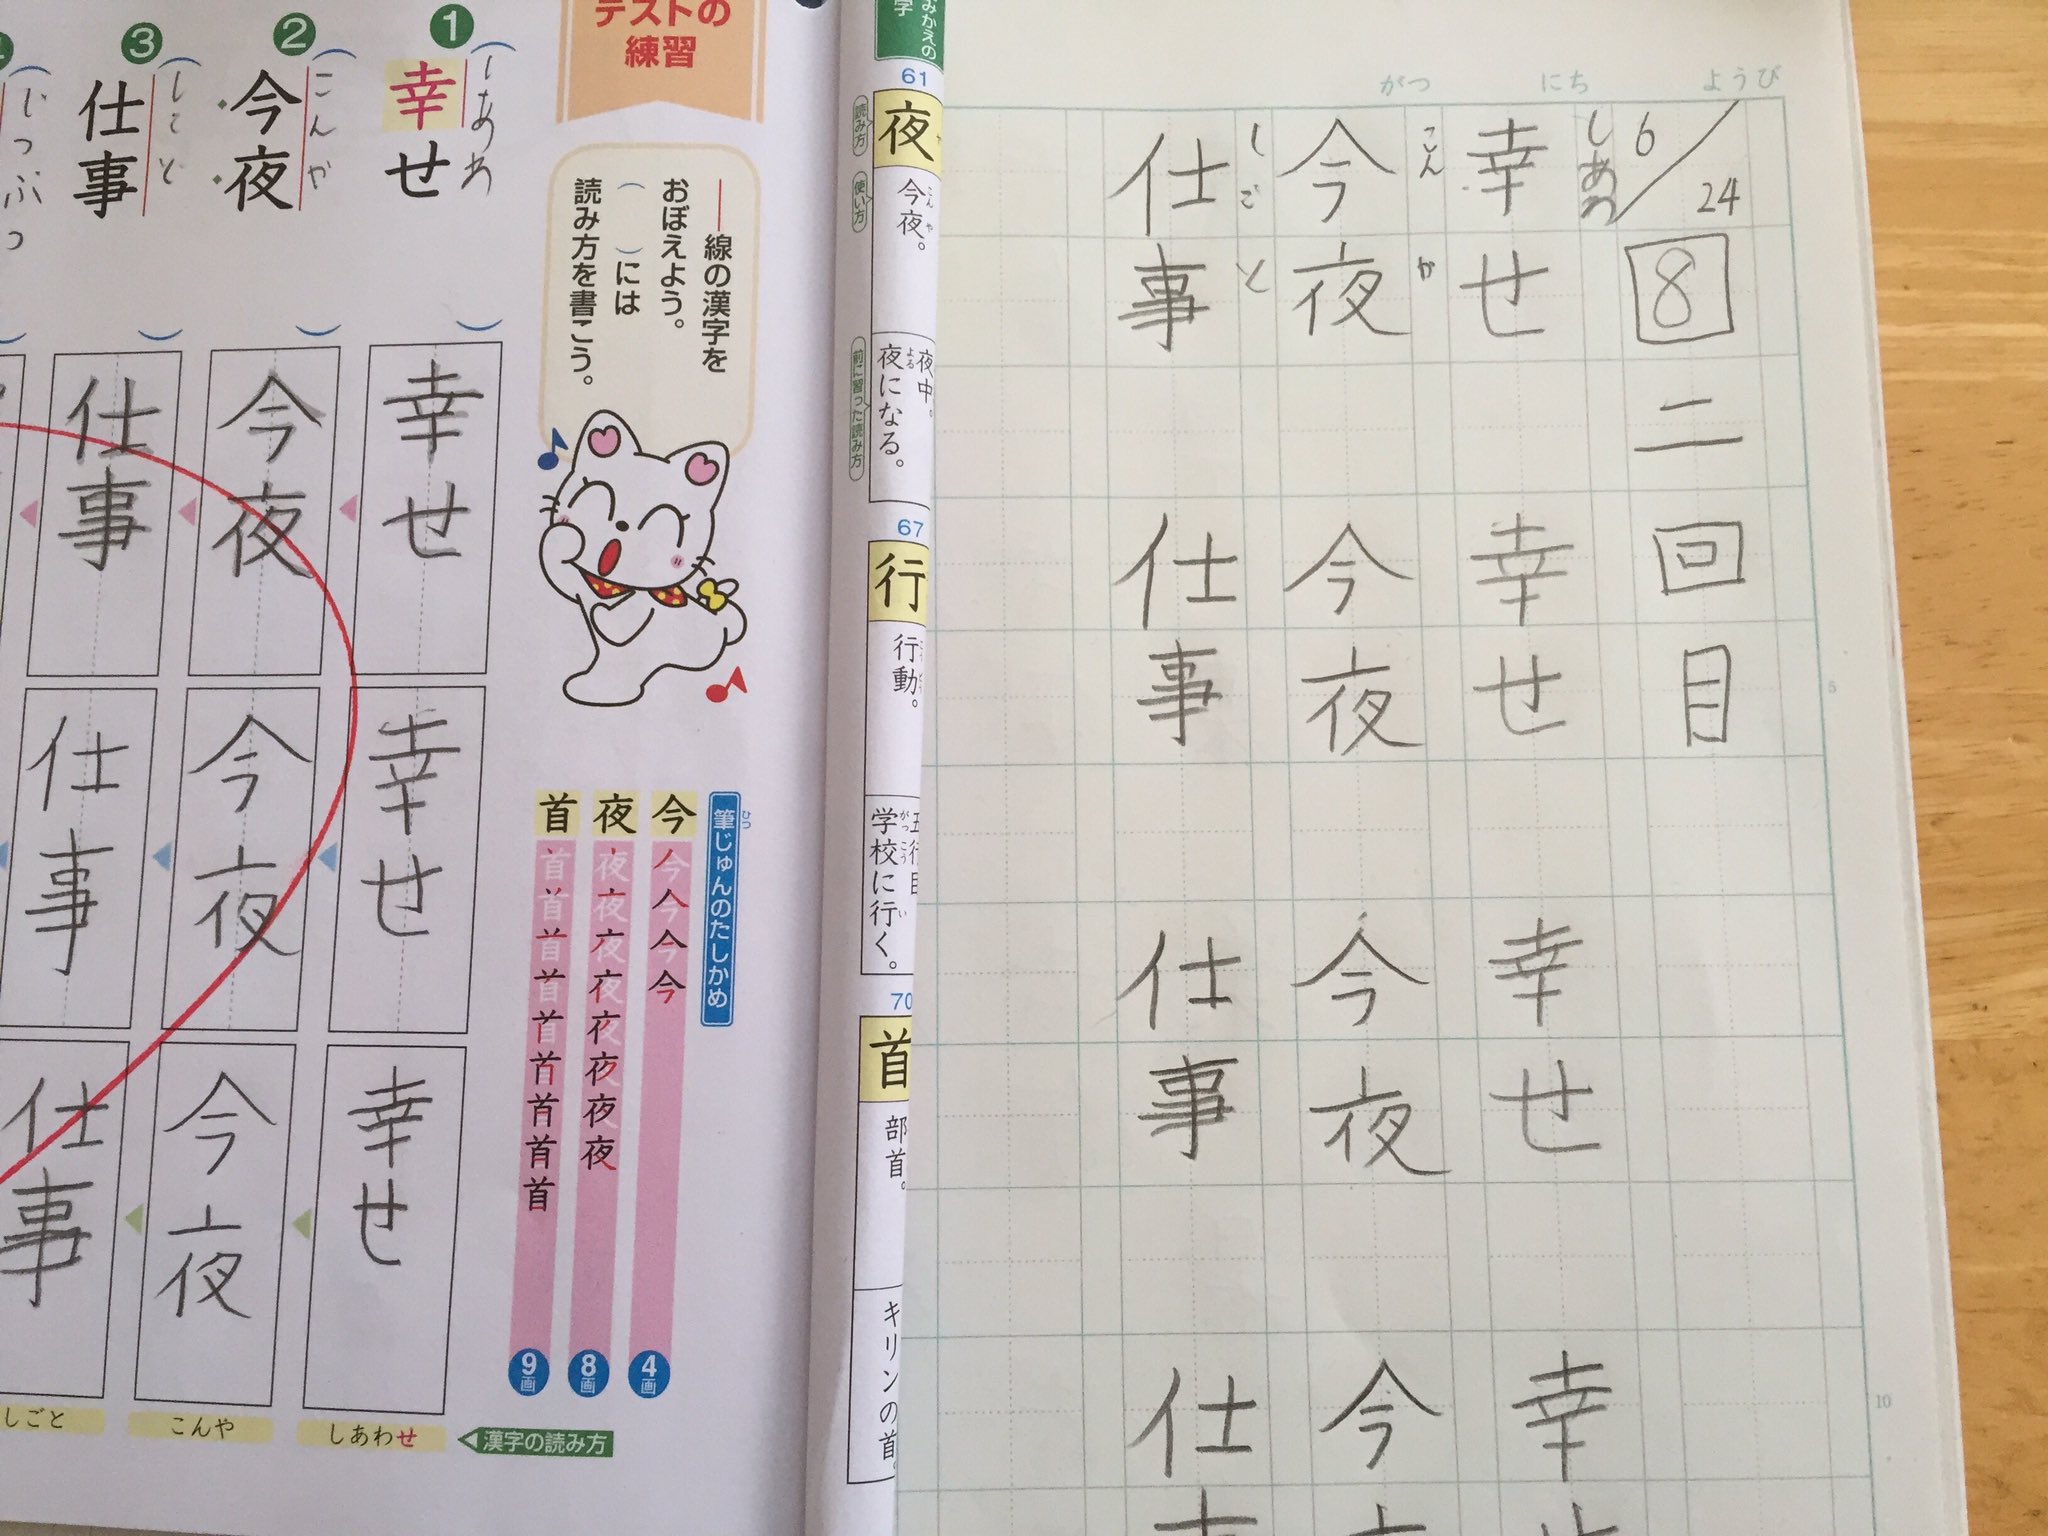 がつ にち ようび
6/24
8 二回目
しあわ
幸せ 幸せ 幸せ 幸せ
こんや
今夜 今夜 今夜 今夜
しごと
仕事 仕事 仕事 仕事
5
10
みかえの
字
61
夜
読み方
使い方
今夜。
こんや
前に習った読み方
夜中。
夜になる。
よる
67
行
行動。
五行目
学校に行く。
がっこう い
70
首
部首。
キリンの首。
テストの
練習
――線の漢字を
おぼえよう。
( )には
読み方を書こう。
筆じゅんのたしかめ
ひつ
今
今 今 今 今
4画
夜
夜 夜 夜 夜 夜 夜 夜 夜
8画
首
首 首 首 首 首 首 首 首 首
9画
1
(しあわ)
幸せ
幸せ
幸せ
幸せ
しあわせ
2
(こんや)
今夜
今夜
今夜
今夜
こんや
3
(しごと)
仕事
仕事
仕事
仕事
しごと
(じつぶつ
漢字の読み方